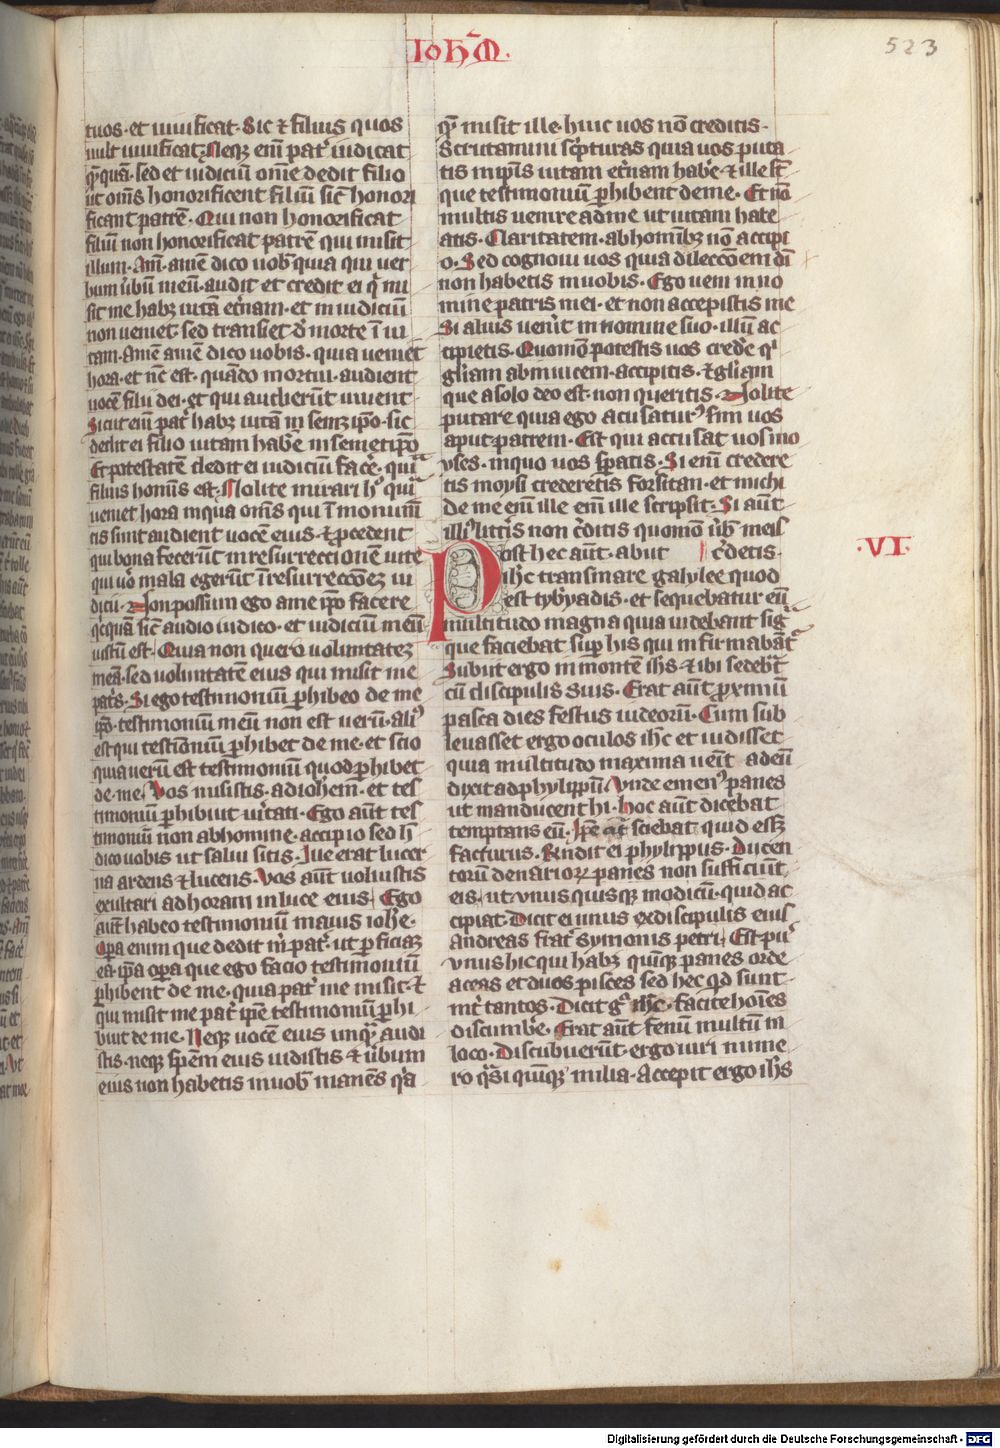 Ioh̄M.
523
tuos·et uiuificat· Sic ⁊ filius quos
uult uiuificat· Neqꝫ eni᷒ pat᷑ iudicat
q̄ꝙ quā· sed et iudiciū om̄e dedit filio
ut om̄s honorificent filiū sic̄ honori
ficant patrē· Qui non honorificat
filiū non honorificat patrē qui misit
illum· Am̄· amē dico uob̄ quia qui uer
bum ūbū meū· audit et credit ei q̄ mi
sit me habꝫ uitā et̄nam· et in iudiciū
non ueniet· sed transiet d̄ morte ī ui
tam· Amē amē dico uobis· quia ueniet
hora· et nc̄ est· quādo mortui· audient
uocē filii dei· et qui audierūt uiuent
Sicut eni᷒ pat᷑ habꝫ uitā in semꝫ ip̄o· sic
dedit ei filio uitam habē in semetip̄o
Et potestatē dedit ei iudiciū facē· quia
filius homīs est· Nolite mirari hͦ quia
ueniet hora in qua om̄s qui ī monum̄
tis sunt audient uocē eius· ⁊ ꝓcedent
qui bona fecerūt in resurrectionē uite
qui uͦ mala egerūt ī resurreccōeꝫ iu
dicii· Non possum ego a me ip̄o facere
qͥcquā sic̄ audio iudico· et iudiciū meū
iustū est· Quia non quero uoluntateꝫ
meā· sed uoluntatē eius qui misit me
pat̄s· Si ego testimoniū ꝑhibeo de me
ip̄o· testimoniū meū non est uerū· aliꝰ
est qui testiōniū ꝑhibet de me· et scio
quia uerū est testimoniū quod ꝑhibet
de me· Vos misistis· ad ioh̄em· et tes
timoniū ꝑhibuit ūitati· Ego aūt tes
timoniū non ab homine· accipio sed h̄
dico uobis ut salui sitis· Ille erat lucer
na ardens ⁊ lucens· Vos aūt uoluistis
exultari ad horam in luce eius· Ego
aūt habeo testimoniū maius ioh̄e·
Oꝑa enim que dedit m̄ pat᷑· ut ꝑficiaꝫ
ea· ip̄a oꝑa que ego facio testimoniū
ꝑhibent de me· quia pat᷑ me misit· ⁊
qui misit me pat᷑ ip̄e testimoniū ꝑhi
buit de me· Neqꝫ uocē eius unqͣ audi
stis· neqꝫ sp̄em eius uidistis ⁊ ūbum
eius non habetis in uob̄ manēs qͥa
q̄ misit ille· huic uos nō creditis·
Scrutamini sc̄pturas quia uos puta
tis in ip̄is uitam et̄nam habē· ⁊ ille st̄
que testimoniū ꝑhibent de me· Et nō
uultis uenire ad me ut uitam habe
atis· Claritatem· ab homībꝫ nō accipi
o· Sed cognoui uos quia dileccōem di᷒
non habetis in uobis· Ego ueni in no
mine patris mei· et non accepistis me
Si alius uen̄it in nomine suo· illū ac
cipietis· Quomō potestis uos credē qͥ
gl̄iam ab inuicem· accipitis· ⁊ gl̄iam
que a solo deo est· non queritis· Nolite
putare quia ego acusaturꝰ sim uos
aput patrem· Est qui accusat uos mo
yses· in quo uos sꝑatis· Si eni᷒ credere
tis moysi crederētis forsitan· et michi
de me eni᷒ ille eni᷒ ille scripsit· Si aūt
illiꝰ litt̄is non c̄ditis quomō ūb̄ meis
Post hec aūt· abiit c̄detis·
ih̄c trans mare galylee quod
est tybyadis· et sequebatur eū
multitudo magna quia uidebant sigͣ
que faciebat suꝑ his qui infirmabāt᷑
Subiit ergo in montē ih̄s ⁊ ibi sedebt̄
cū discipulis suis· Erat aūt ꝓximū
pasca dies festus iudeorū· Cum sub
leuasset ergo oculos ih̄c et uidisset
quia multitudo maxima uēit ad eū
dixit ad phylyppū Vnde ememꝰ panes
ut manducent hi· hoc aūt dicebat
temptans eū· Ip̄e eni᷒ sciebat· quid essꝫ
facturus· Rn̄dit ei phylyppus· Ducen
torū denarioꝝ panes non sufficiūt
eis· ut· vnus quisqꝫ modicū· quid ac
cipiat· Dicit ei unus ex discipulis eius
Andreas frat᷑ symonis petri· Est pu᷑
vnus hic qui habꝫ quīqꝫ panes orde
aceas et duos pisces sed hec qͥd sunt
int᷑ tantos· Dicit gͦ ih̄c· facite hoīes
discumbē· Erat aūt fenū multū in
loco· Discubuerūt· ergo uiri nume
ro qͣsi quīqꝫ milia· Accepit ergo ih̄s
·VI·
Digitalisierung gefördert durch die Deutsche Forschungsgemeinschaft - DFG